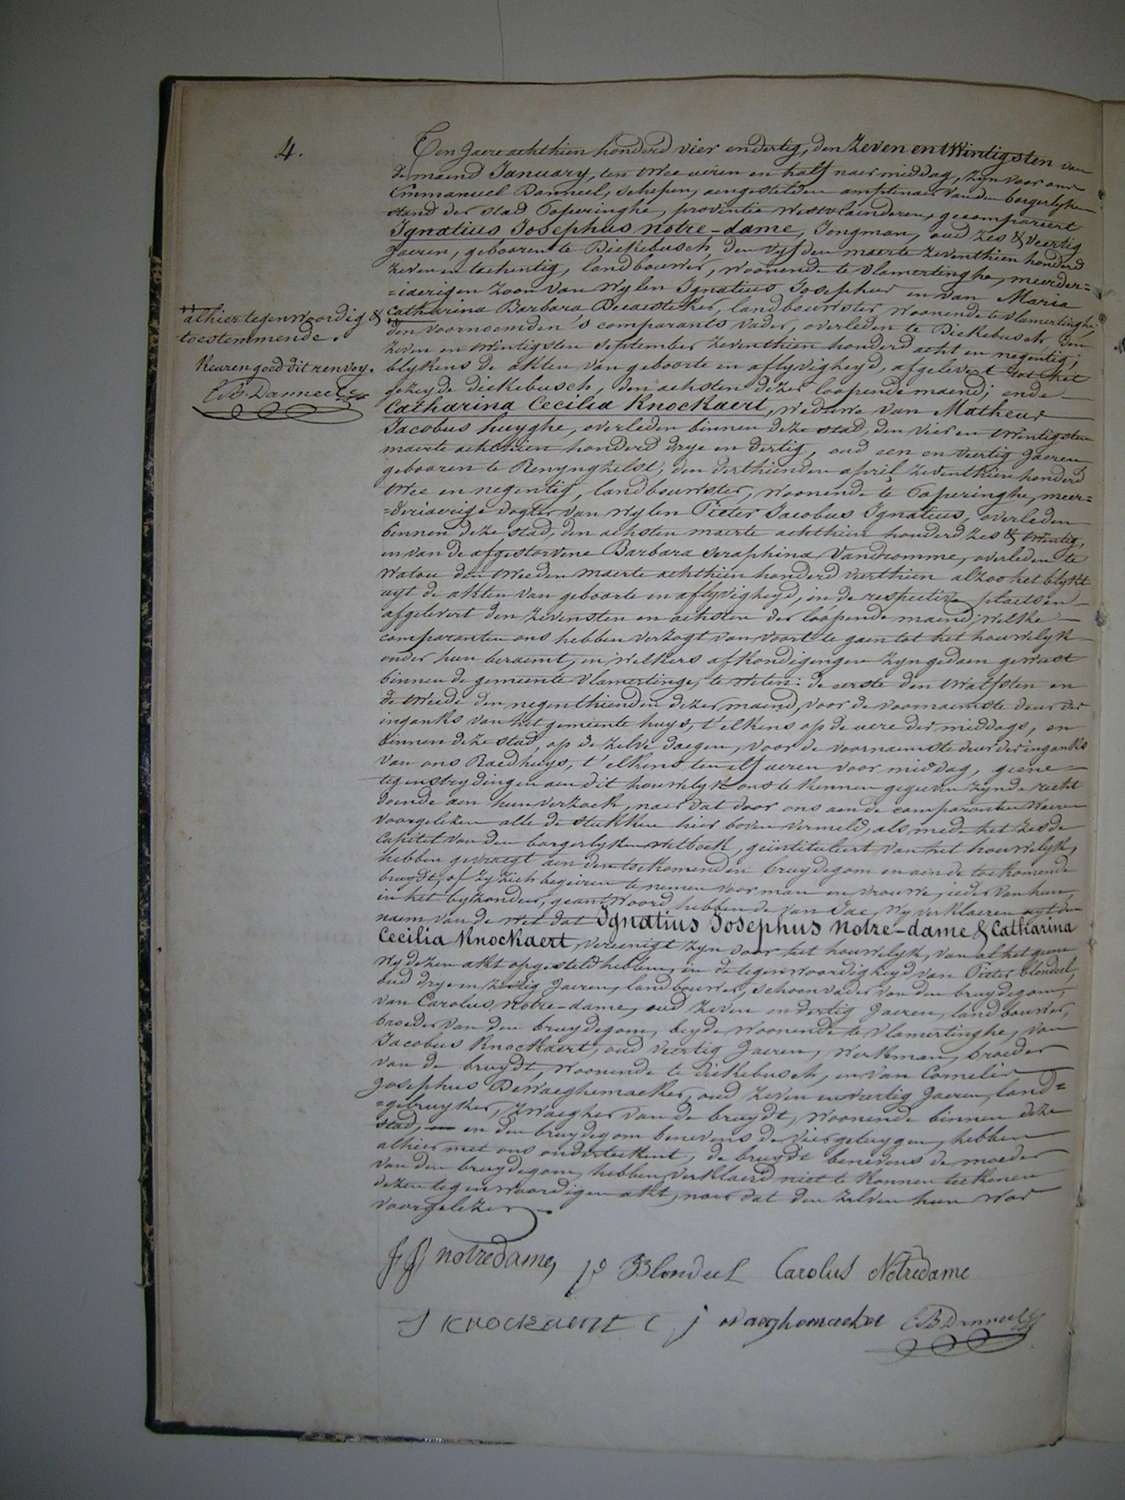 4.
Ten Jaere achthien honderd vier en dertig, den Zeven en twintigsten van
de maend January, ten twee ueren en half naer middag, zyn voor ons
Emmanuel Danneel, schepen, aengestelden amptenaer van den borgerlyken
stand der stad Poperinghe, provintie Westvlaenderen, gecompareert
Ignatius Josephus Notre-dame, Jongman, oud zes & veertig
Jaeren, gebooren te Dickebusch, den vyfden maerte zeventhien honderd
zeven en tachentig, landbouwer, woonende te Vlamertinghe, meerder-
=iaerigen zoon van wylen Ignatius Josephus en van Maria
Catharina Barbara landbouwster, woonende te Vlamertinghe
den voornoemden 's comparants vader, overleden te Dickebusch den
zeven en twintigsten september zeventhien honderd acht en negentig,
blykens de akten van geboorte en aflyvigheyd, afgelevert tot het
gezeyde Dickebusch, den achsten dezer loopende maend; ende
Catharina Cecilia Knockaert, weduwe van Matheus
Jacobus Huyghe, overleden binnen deze stad, den vier en twintigsten
maerte achthien honderd drye en dertig, oud een en veertig Jaeren
gebooren te Renynghelst, den derthienden april zeventhien honderd
twee en negentig, landbouwster, woonende te Poperinghe, meer=
=deriaerige dogter van wylen Pieter Jacobus Ignatius, overleden
binnen deze stad, den achsten maerte achthien honderd zes & twintig,
en van de afgestorvene Barbara Seraphina Vandromme, overleden te
Watou den tweeden maerte achthien honderd vierthien alzoo het blykt
uyt de akten van geboorte en aflyvigheyd, in de respective plaetsen
afgelevert den zevensten en achsten der loopende maend; welke
comparanten ons hebben verzogt van voort te gaen tot het houwelyk
onder hun beraemt, en welkers afkondigingen zyn gedaen geweest
binnen de gemeente Vlamertinge, te weten: de eerste den twalfsten en
de tweede den negenthienden dezer maend, voor de voornaemste deur der
inganks van het gemeente huys, t'elkens op de uere der middags, en
binnen deze stad, op de zelve daegen, voor de voornaemste deur der inganks
van ons Raedhuys, t'elkens ten elf ueren voor middag, geene
tegenstrydingen aen dit houwelyk ons te kennen gegeven zynde recht
doende aen hun verzoek, naer dat door ons aen de comparanten waeren
voorgelezen alle de stukken hier boven vermeld, als mede het zesde
Capitel van den borgerlyken wetboek, geïntituleert van het houwelyk,
hebben gevraegt aen den toekomenden bruydegom en aen de toekomende
bruydt, of zy zich begeiren te nemen voor man en vrouwe, ieder van hun,
in het byzonder, geantwoord hebbende van Jae, wy verklaeren uyt den
naem van de wet dat Ignatius Josephus Notre-dame & Catharina
Cecilia Knockaert, vereenigt zyn voor het houwelyk, van al het gene
wy dezen akt opgesteld hebben, in de tegenwoordigheyd van Pieter Blondeel,
oud drye en zestig Jaeren, landbouwer, schoonvader van den bruydegom,
van Carolus Notre-dame, oud zeven en dertig Jaeren, landbouwer,
broeder van den bruydegom, beyde woonende te Vlamertinghe, van
Jacobus Knockaert, oud veertig Jaeren, werkman, broeder
van de bruydt, woonende te Dickebusch, en van Cornelis
Josephus Dewaeghemaeker, oud zeven en veertig Jaeren, land=
=gebruyker, zwaegher van de bruydt, woonende binnen deze
stad, en den bruydegom benevens de vier getuygen, hebben
alhier met ons onderteekent, de bruydt benevens de moeder
van den bruydegom hebben verklaerd niet te konnen teekenen
dezen tegenwoordigen akt, naer dat den zelven hun was
voorgelezen.
alhier tegenwoordig &
toestemmende.
Keuren goed dit renvoy.
E.B. Danneel
notredame,
P Blondeel
Carolus Notredame
J Knockaert
C j waeghemaeker
E B Danneel